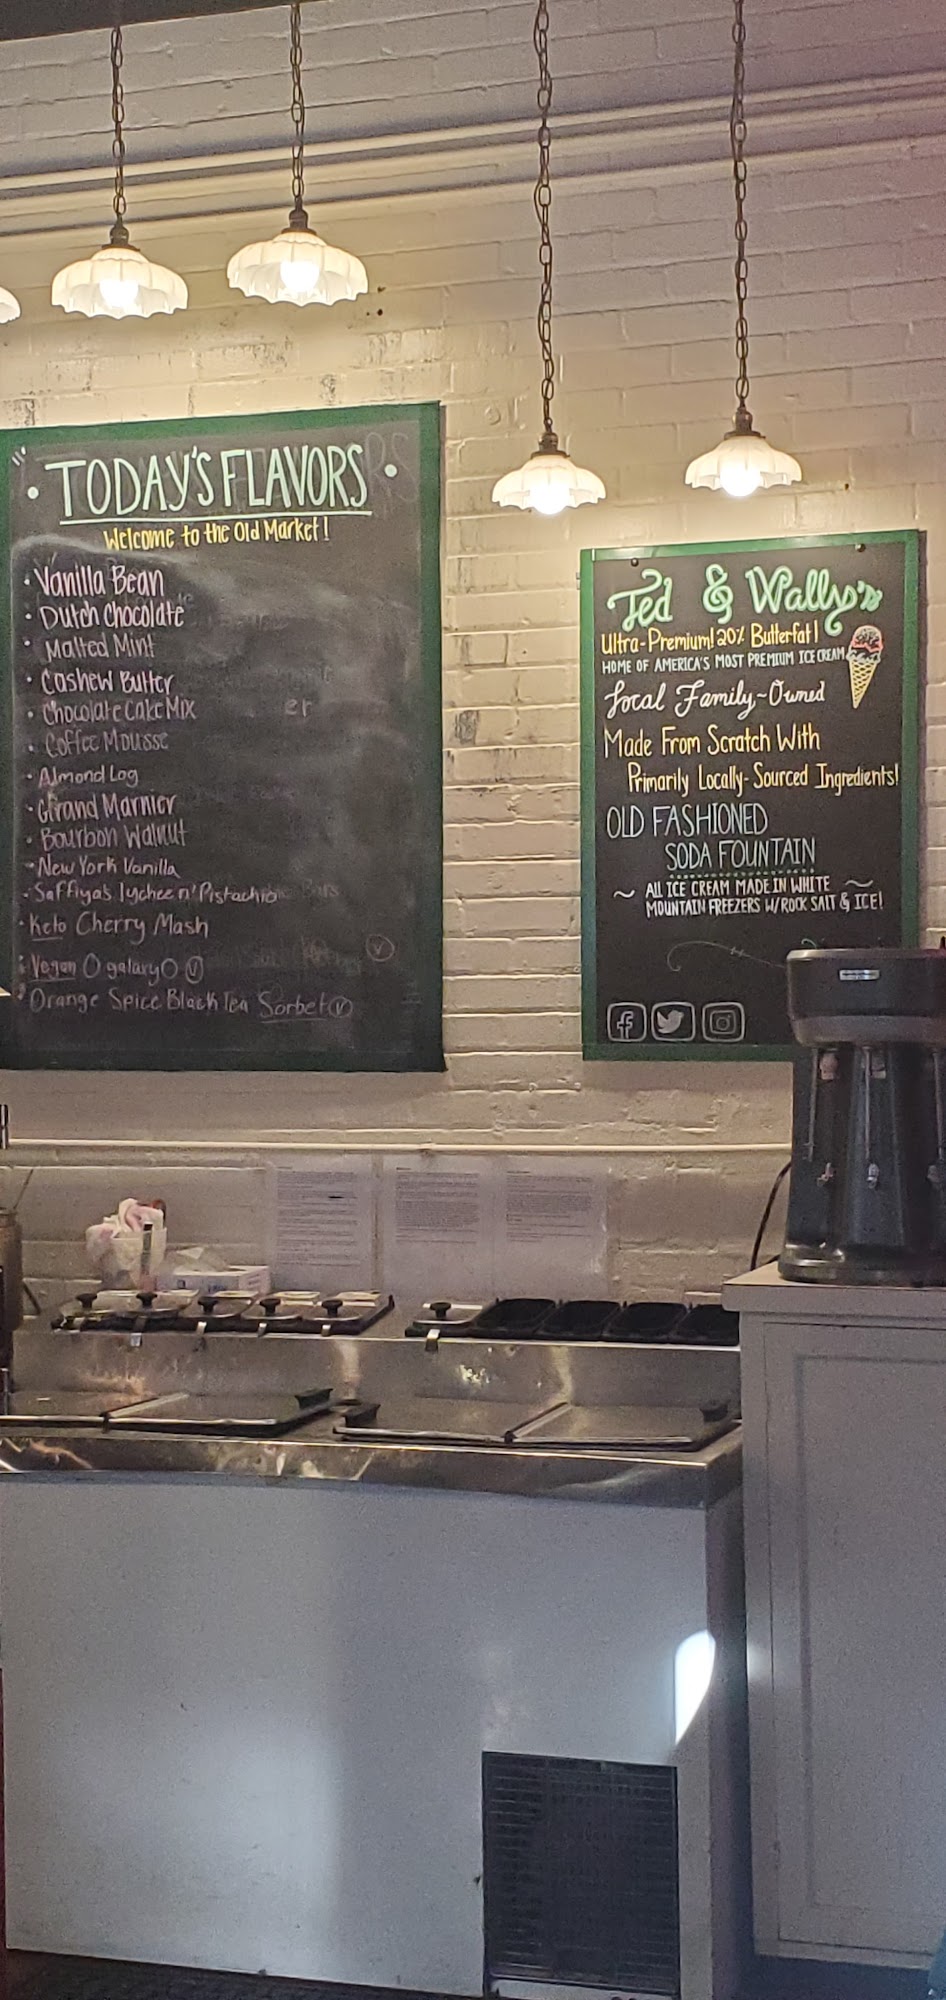 TODAY'S FLAVORS
Welcome to the Old Market!
Vanilla Bean
Dutch Chocolate
Malted Mint
Cashew Butter
Chocolate Cake Mix
Coffee Mousse
Almond Log
Grand Marnier
Bourbon Walnut
New York Vanilla
Saffiya's lychee n' Pistachio
Keto Cherry Mash
Vegan galaxy V
Orange Spice Black Tea Sorbet V
Ted & Wally's
Ultra-Premium! 20% Butterfat!
HOME OF AMERICA'S MOST PREMIUM ICE CREAM
Local Family-Owned
Made From Scratch With
Primarily Locally-Sourced Ingredients!
OLD FASHIONED
SODA FOUNTAIN
~ ALL ICE CREAM MADE IN WHITE ~
MOUNTAIN FREEZERS W/ROCK SALT & ICE!